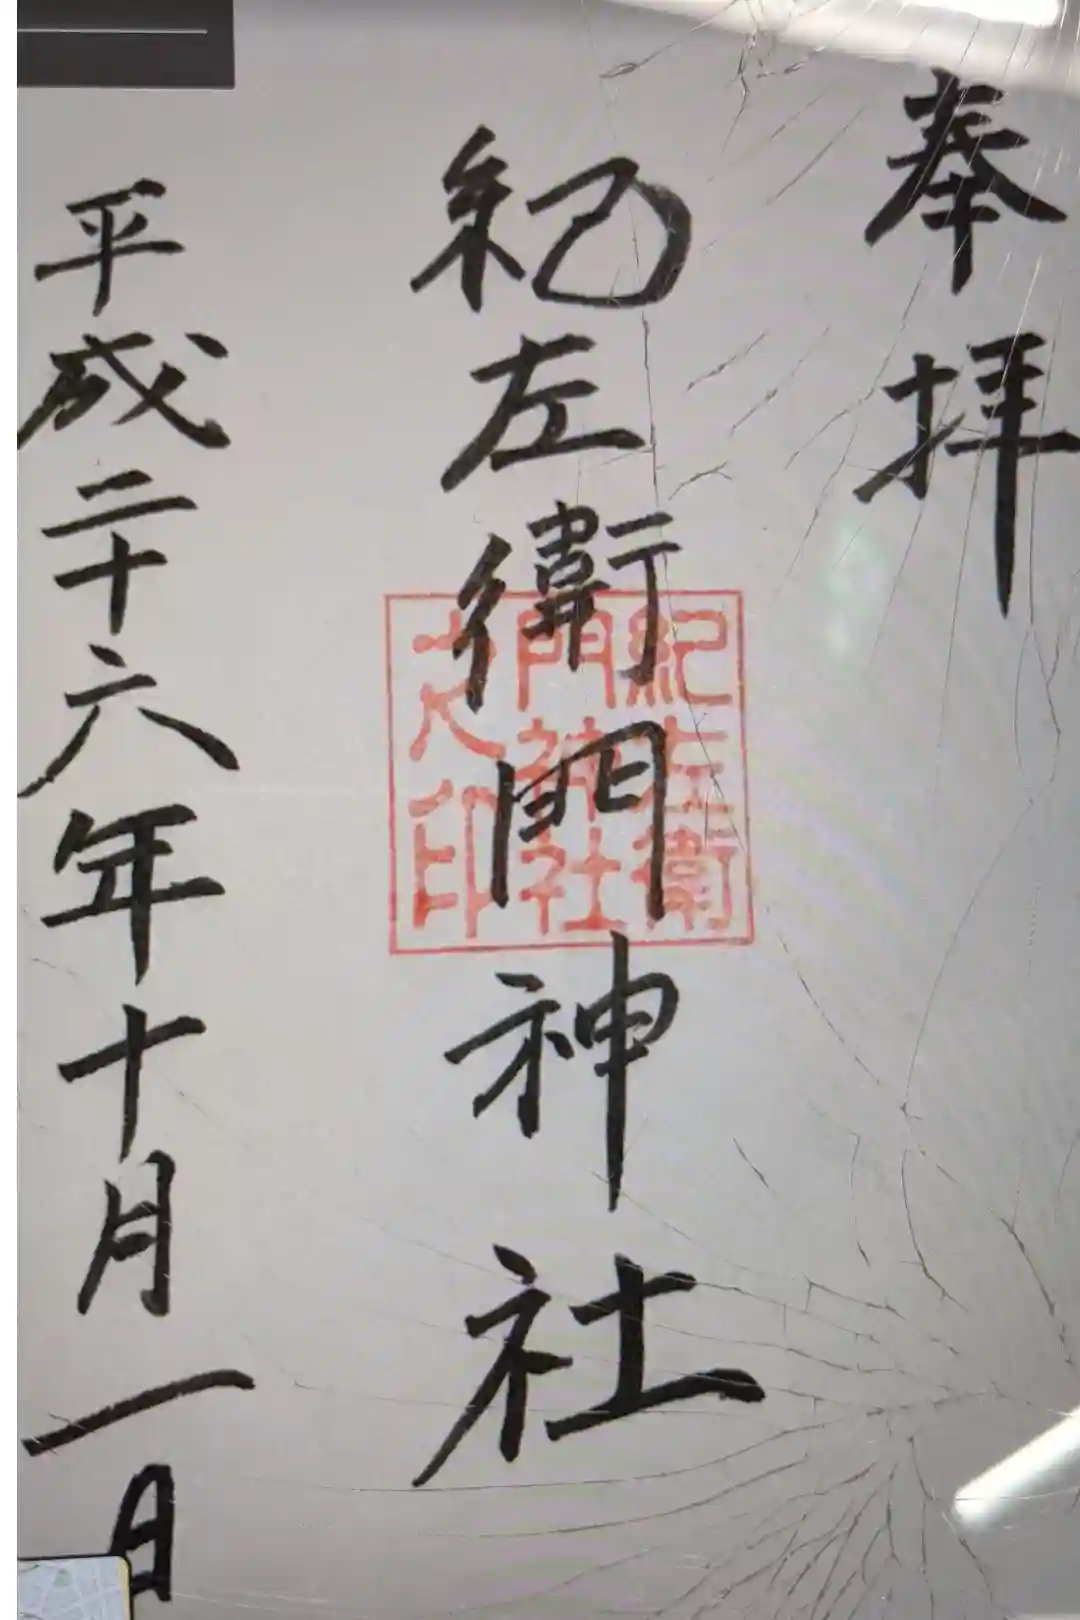 奉拝
紀左衛門神社
紀左衛
門神社
之印
平成二十六年十月一日